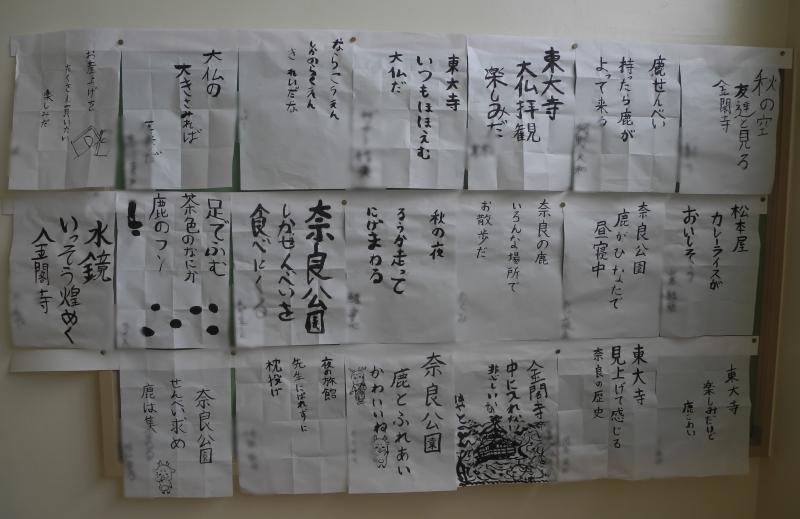 秋の空
友達と見る
金閣寺
鹿せんべい
持たら鹿が
よって来る
東大寺
大仏拝観
楽しみだ
東大寺
いつもほほえむ
大仏だ
ならこうえん
しかのらくえん
きれいだな
大仏の
大きさみれば
お土産を
たくさん買いたい
楽しみだ
松本屋
カレーライスが
おいしそう
奈良公園
鹿がひなたで
昼寝中
奈良の鹿
いろんな場所で
お散歩だ
秋の夜
ろうか走って
にげまわる
奈良公園
しかせんべいを
食べに
足でふむ
茶色のなにか
鹿のフン
水鏡
いっそう煌めく
金閣寺
東大寺
楽しみだけど
鹿こわい
東大寺
見上げて感じる
奈良の歴史
金閣寺
中に入れない
奈良公園
鹿とふれあい
かわいいね
夜の旅館
先生にばれずに
枕投げ
奈良公園
せんべい求め
鹿は集